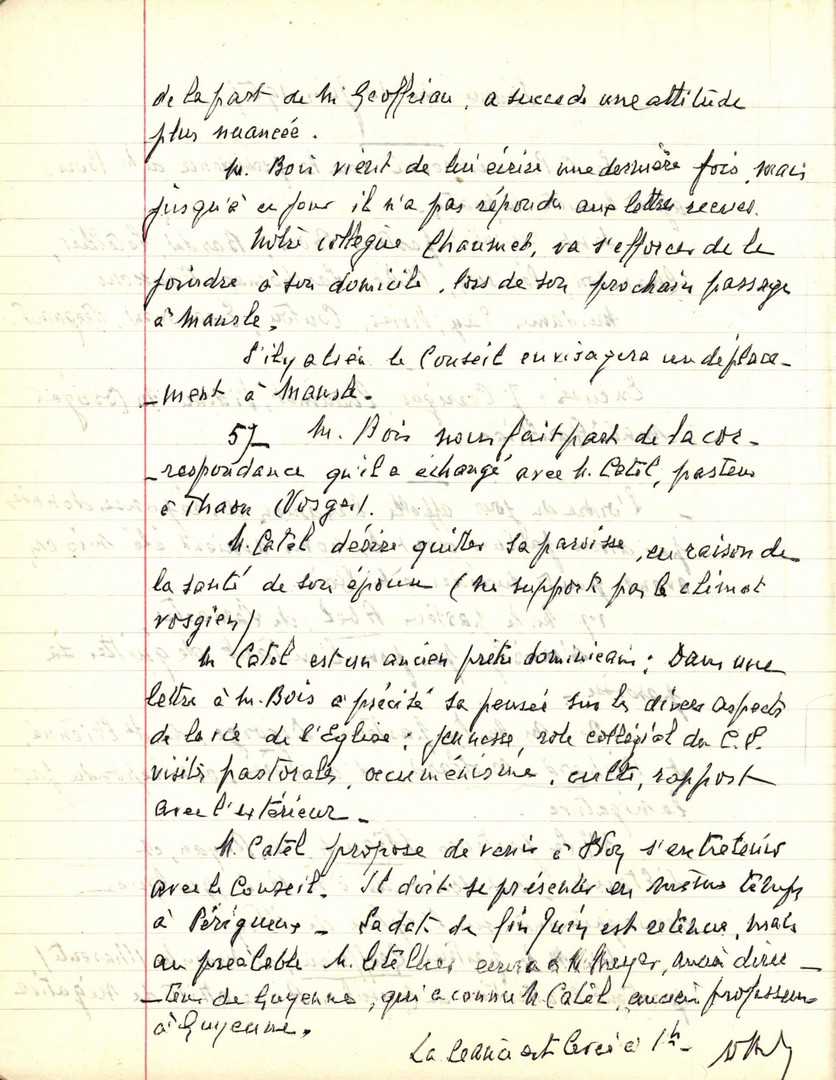 de la part de M. Geoffriau, a succédé une attitude
plus nuancée.
M. Bois vient de lui écrire une dernière fois, mais
jusqu'à ce jour il n'a pas répondu aux lettres reçues.
Notre collègue Chaumet, va s'efforcer de le
joindre à son domicile, lors de son prochain passage
à Mansle.
S'il y a lieu le Conseil envisagera un déplace-
-ment à Mansle.
5)_ M. Bois nous fait part de la cor-
-respondance qu'il a échangé avec M. Catel, pasteur
à Thaon (Vosges).
M. Catel désire quitter sa paroisse, en raison de
la santé de son épouse (ne supporte pas le climat
vosgien)
M Catel est un ancien prêtre dominicain ; Dans une
lettre à M. Bois a précisé sa pensée sur les divers aspects
de la vie de l'Eglise : jeunesse, role collégial du C.P.
visites pastorales, oecuménisme, culte, rapport
avec l'extérieur._
M. Catel propose de venir à s'entretenir
avec le Conseil. Il doit se présenter en même temps
à Périgueux_ La date de fin Juin est retenue, mais
au préalable M. écrira à M Meyer, ancien direc-
-teur de Guyenne, qui a connu M Catel, ancien professeur
à Guyenne.
La séance est levée à 1h_